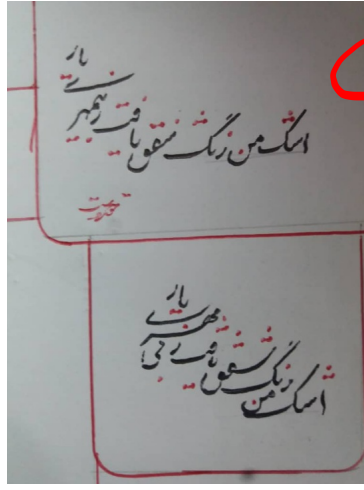 اشک من رنگ شفق یافت ز بی‌مهری یار
اشک من رنگ شفق یافت ز بی مهری یار